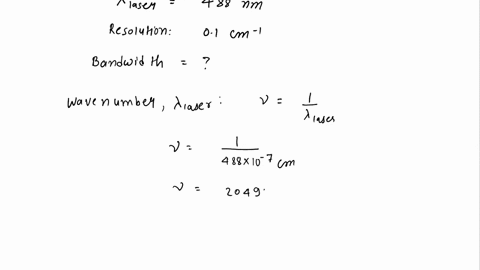 λ laser = 488 nm
Resolution: 0.1 cm⁻¹
Bandwidth = ?
Wavenumber, λ laser: ν = 1 / λ laser
ν = 1 / 488×10⁻⁷ cm
ν = 2049.